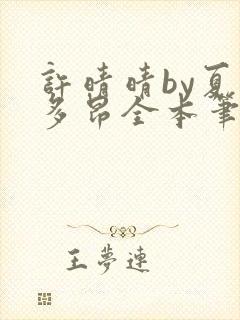 許晴晴by夏
多昂全本筆
王夢連